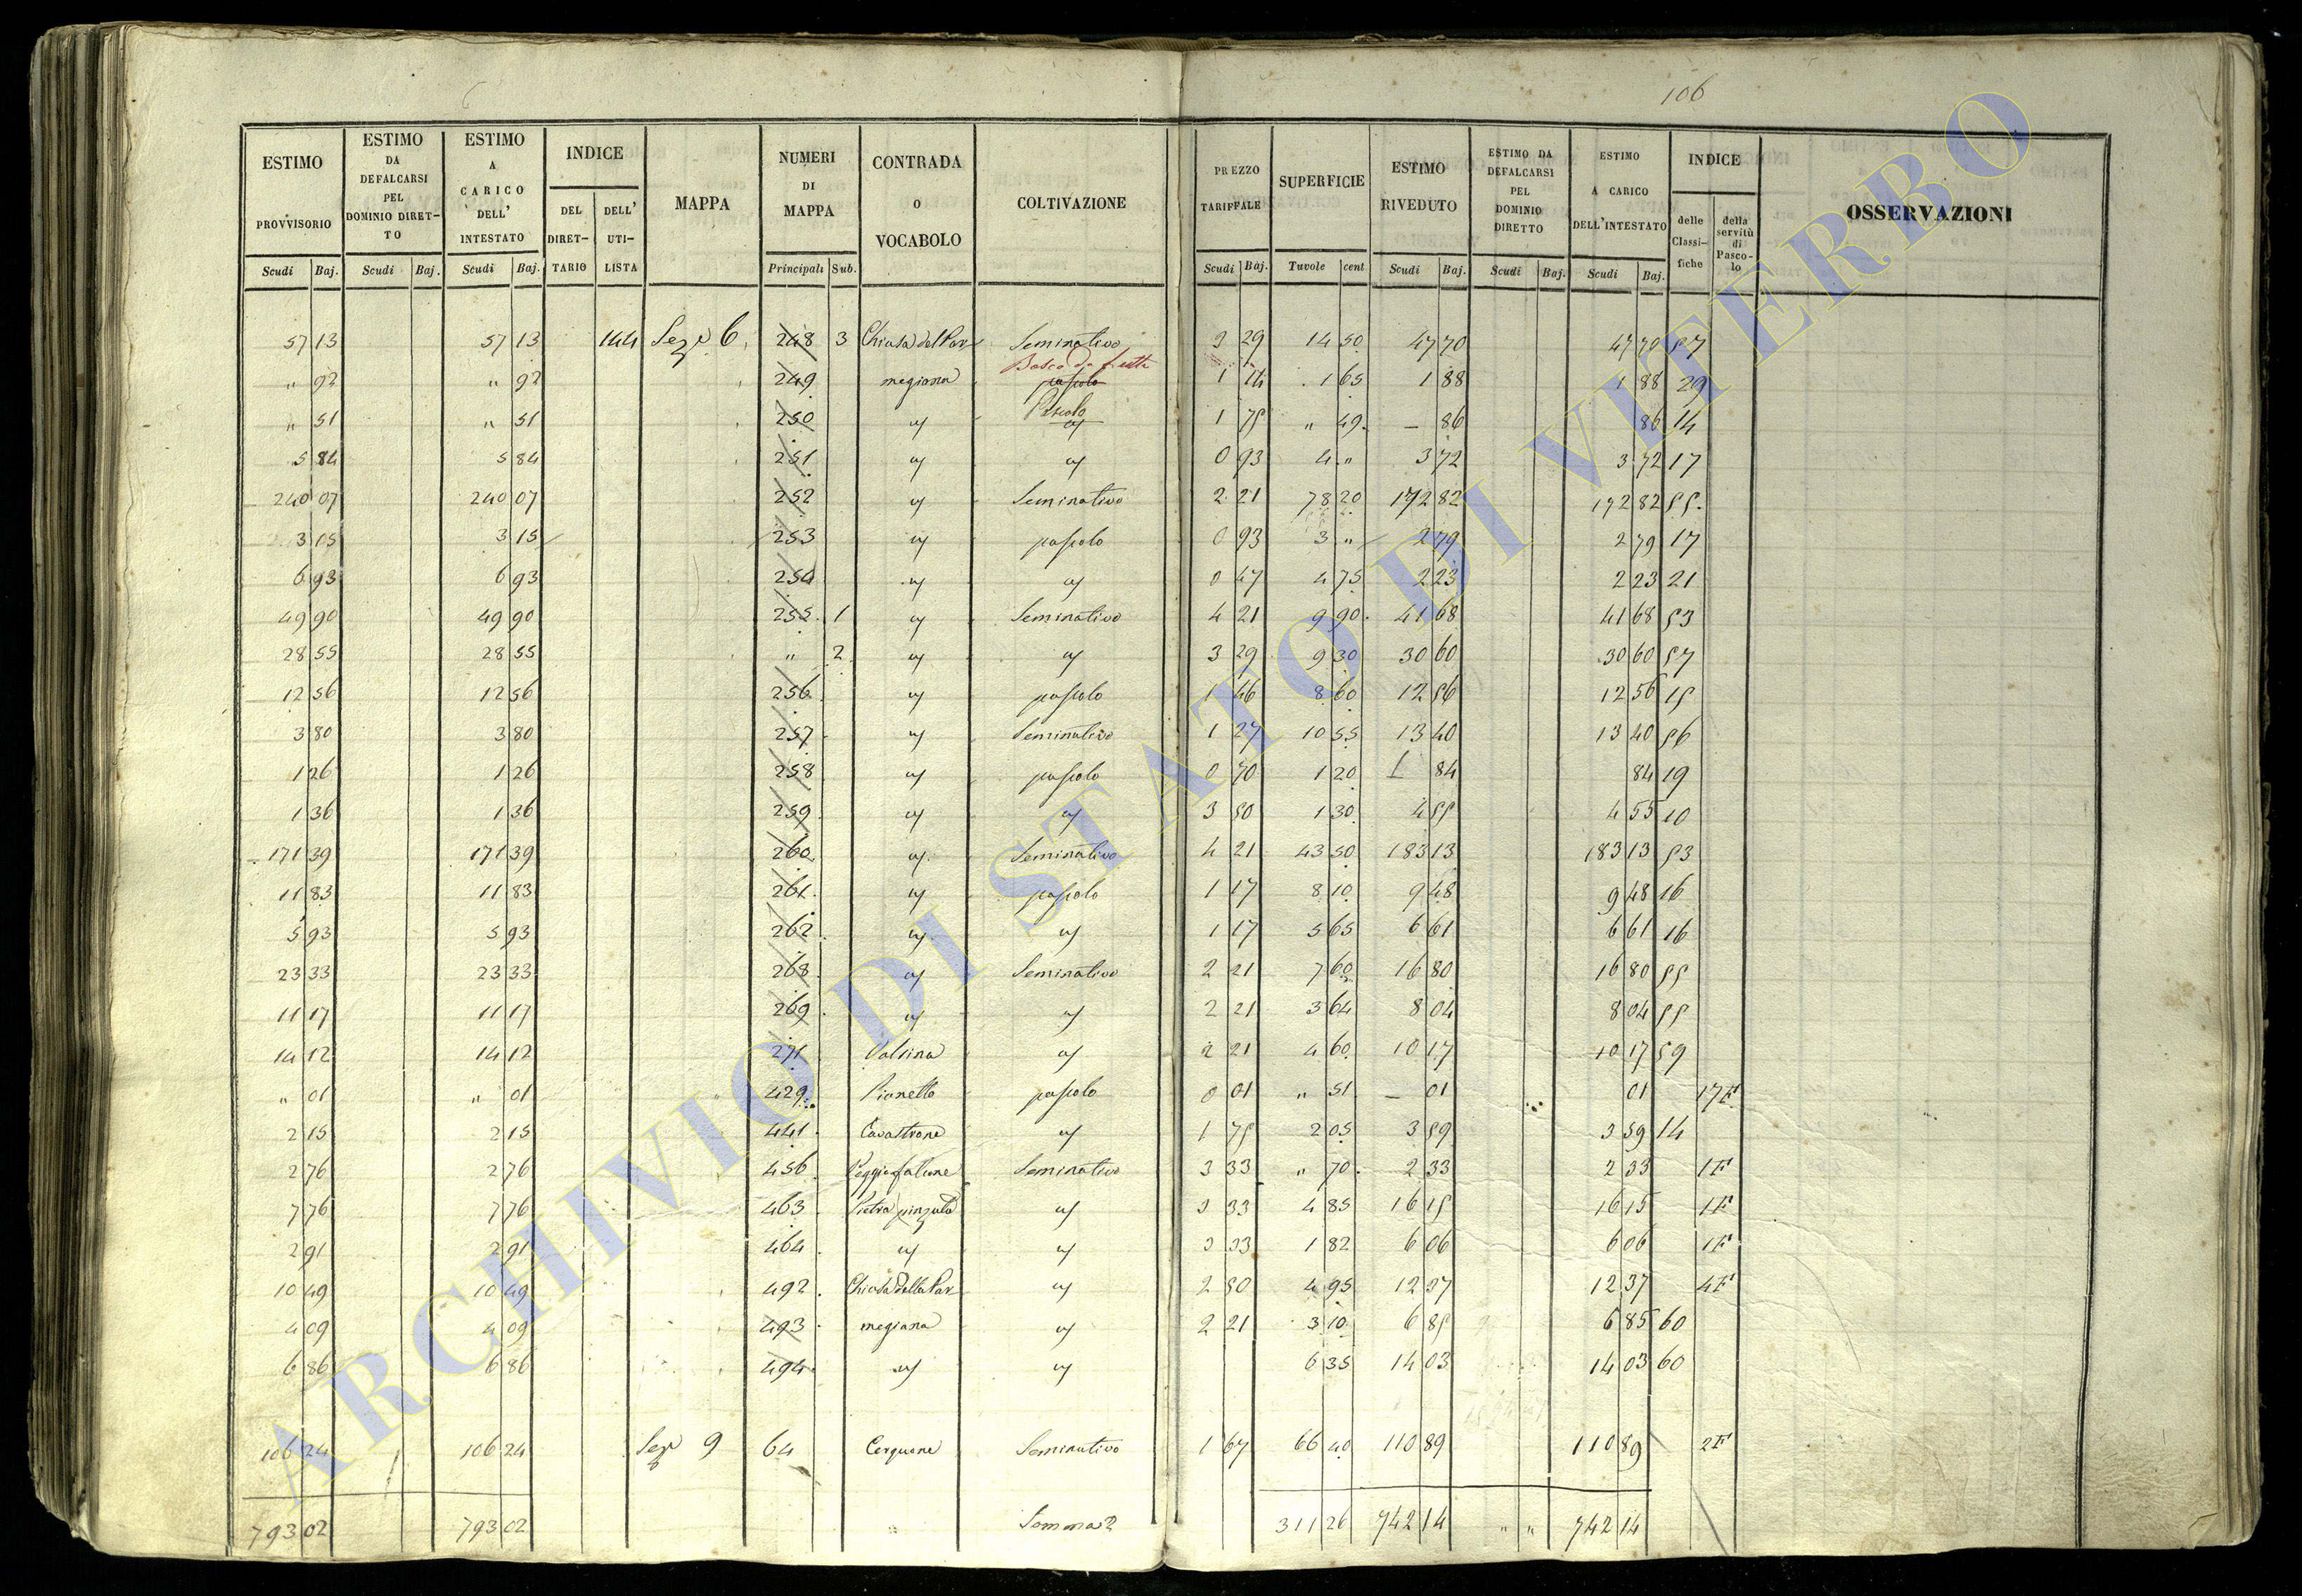 106
ESTIMO PROVVISORIO Scudi Baj.
ESTIMO DA DEFALCARSI PEL DOMINIO DIRET-TO Scudi Baj.
ESTIMO A CARICO DELL' INTESTATO Scudi Baj.
INDICE DEL DIRET-TARIO DELL' UTI-LISTA
MAPPA
NUMERI DI MAPPA Principali Sub.
CONTRADA O VOCABOLO
COLTIVAZIONE
PREZZO TARIFFALE Scudi Baj.
SUPERFICIE Tavole cent
ESTIMO RIVEDUTO Scudi Baj.
ESTIMO DA DEFALCARSI PEL DOMINIO DIRETTO Scudi Baj.
ESTIMO A CARICO DELL'INTESTATO Scudi Baj.
INDICE delle Classi-fiche della servitù di Pasco-lo
OSSERVAZIONI
57 13 57 13 144 Sez.e 6 248 3 Chiusa del Par Seminativo 3 29 14 50 47 70 47 70 57
Bosco da frutto
" 92 " 92 249 megiana pascolo 1 14 1 65 1 88 1 88 29
Pascolo
" 51 " 51 250 " " 1 75 " 49 - 86 86 14
5 84 5 84 251 " " 0 93 4 " 3 72 3 72 17
240 07 240 07 252 " Seminativo 2 21 78 20 172 82 172 82 55
3 05 3 15 253 " pascolo 0 93 3 " 2 79 2 79 17
6 93 6 93 254 " " 0 47 4 75 2 23 2 23 21
49 90 49 90 255 1 " Seminativo 4 21 9 90 41 68 41 68 53
28 55 28 55 " 2 " " 3 29 9 30 30 60 30 60 57
12 56 12 56 256 " pascolo 1 46 8 60 12 56 12 56 15
3 80 3 80 257 " Seminativo 1 27 10 55 13 40 13 40 56
1 26 1 26 258 " pascolo 0 70 1 20 84 84 19
1 36 1 36 259 " " 3 50 1 30 4 55 4 55 10
171 39 171 39 260 " Seminativo 4 21 43 50 183 13 183 13 53
11 83 11 83 261 " pascolo 1 17 8 10 9 48 9 48 16
5 93 5 93 262 " " 1 17 5 65 6 61 6 61 16
23 33 23 33 268 " Seminativo 2 21 7 60 16 80 16 80 55
11 17 11 17 269 " " 2 21 3 64 8 04 8 04 55
14 12 14 12 271 " 2 21 4 60 10 17 10 17 59
" 01 " 01 429 Pianetto pascolo 0 01 " 51 - 01 01 17 F
2 15 2 15 441 Cavastrone " 1 75 2 05 3 59 3 59 14
2 76 2 76 456 Poggio falcone Seminativo 3 33 " 70 2 33 2 33 1 F
7 76 7 76 463 Pietra pinzuta " 3 33 4 85 16 15 16 15 1 F
2 91 2 91 464 " " 3 33 1 82 6 06 6 06 1 F
10 49 10 49 492 Chiusa della Par " 2 50 4 95 12 37 12 37 4 F
4 09 4 09 493 megiana " 2 21 3 10 6 85 6 85 60
6 86 6 86 494 " " 6 35 14 03 14 03 60
106 24 106 24 Sez.e 9 64 Cerquone Seminativo 1 67 66 40 110 89 110 89 2 F
793 02 793 02 Somma 311 26 742 14 " " 742 14
ARCHIVIO DI STATO DI VITERBO